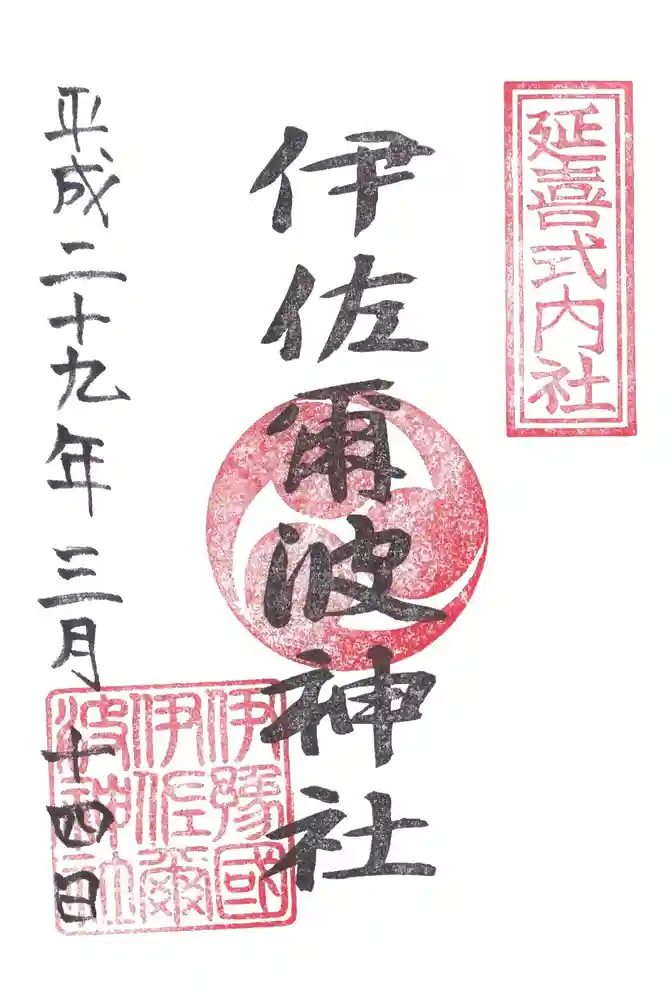 延喜式内社
伊佐爾波神社
伊豫國
伊佐爾
波神社
平成二十九年三月十四日